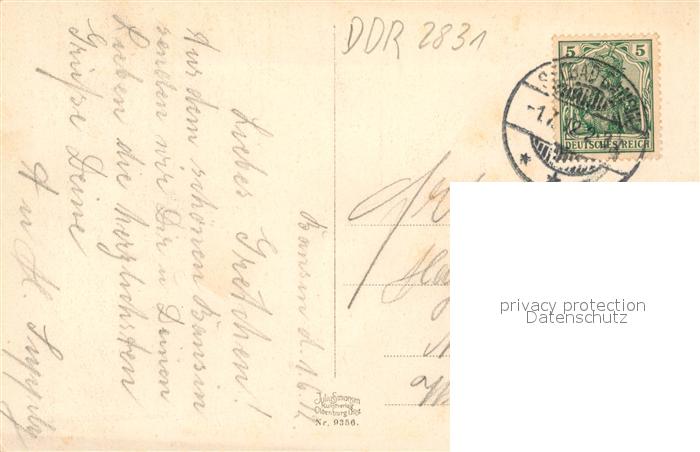 DDR 2831
5 5
DEUTSCHES REICH
SEEBAD BANSIN
-1.7.12
Bansin d. 1.6.12.
Liebes Gretchen!
Aus dem schönen Bansin
senden wir Dir u Deinen
Lieben die herzlichsten
Grüße Deine
A u H.
privacy protection
Datenschutz
Kunstverlag
Oldenburg
Nr. 9356.